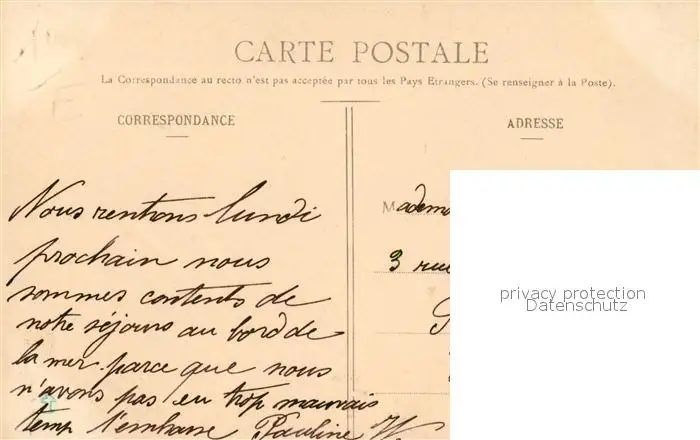 CARTE POSTALE
La Correspondance au recto n'est pas acceptée par tous les Pays Etrangers. (Se renseigner à la Poste).
CORRESPONDANCE
Nous rentrons lundi
prochain nous
sommes contents de
notre séjours au bord de
la mer parce que nous
n'avons pas eu trop mauvais
temp t'embrasse Pauline W
ADRESSE
Madem
3 rue
privacy protection
Datenschutz